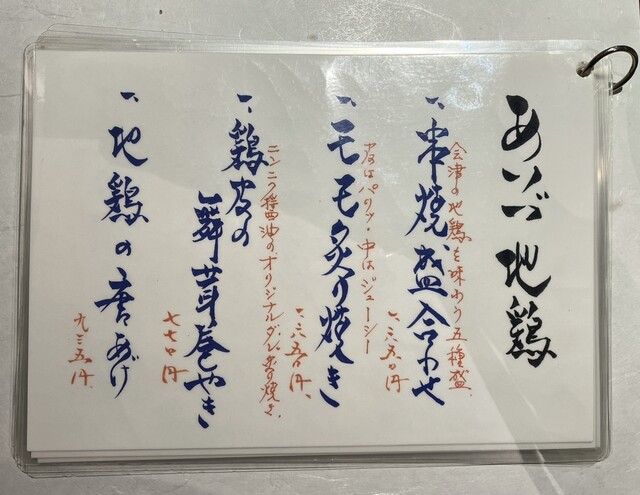 あいづ地鶏
一、串焼盛合わせ
会津の地鶏を味わう五種盛
一、モモ炙り焼き
皮はパリッ・中はジューシー
一、鶏皮の
舞茸巻やき
ニンニク醤油のオリジナルダレ
七七〇円
一、地鶏の唐あげ
九三五円